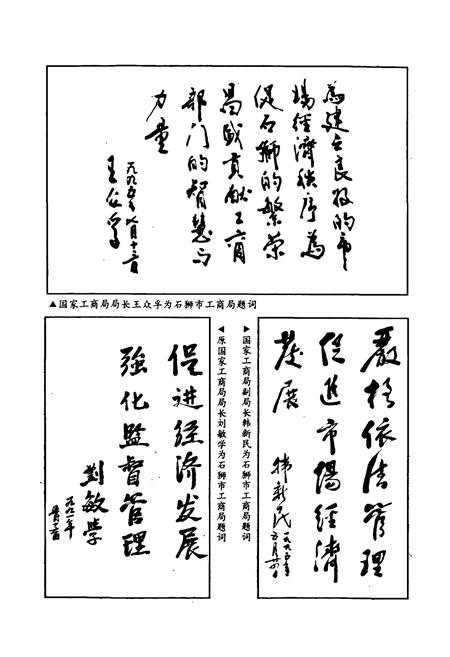 为建立良好的市
场经济秩序为
促石狮的繁荣
昌盛贡献工商
部门的智慧与
力量
王众孚
▲国家工商局局长王众孚为石狮市工商局题词
嚴格依法管理
促進市場經濟
發展
韩新民
一九九五年
▶国家工商局副局长韩新民为石狮市工商局题词
◀原国家工商局局长刘敏学为石狮市工商局题词
促进经济发展
強化監督管理
刘敏学
一九九一年